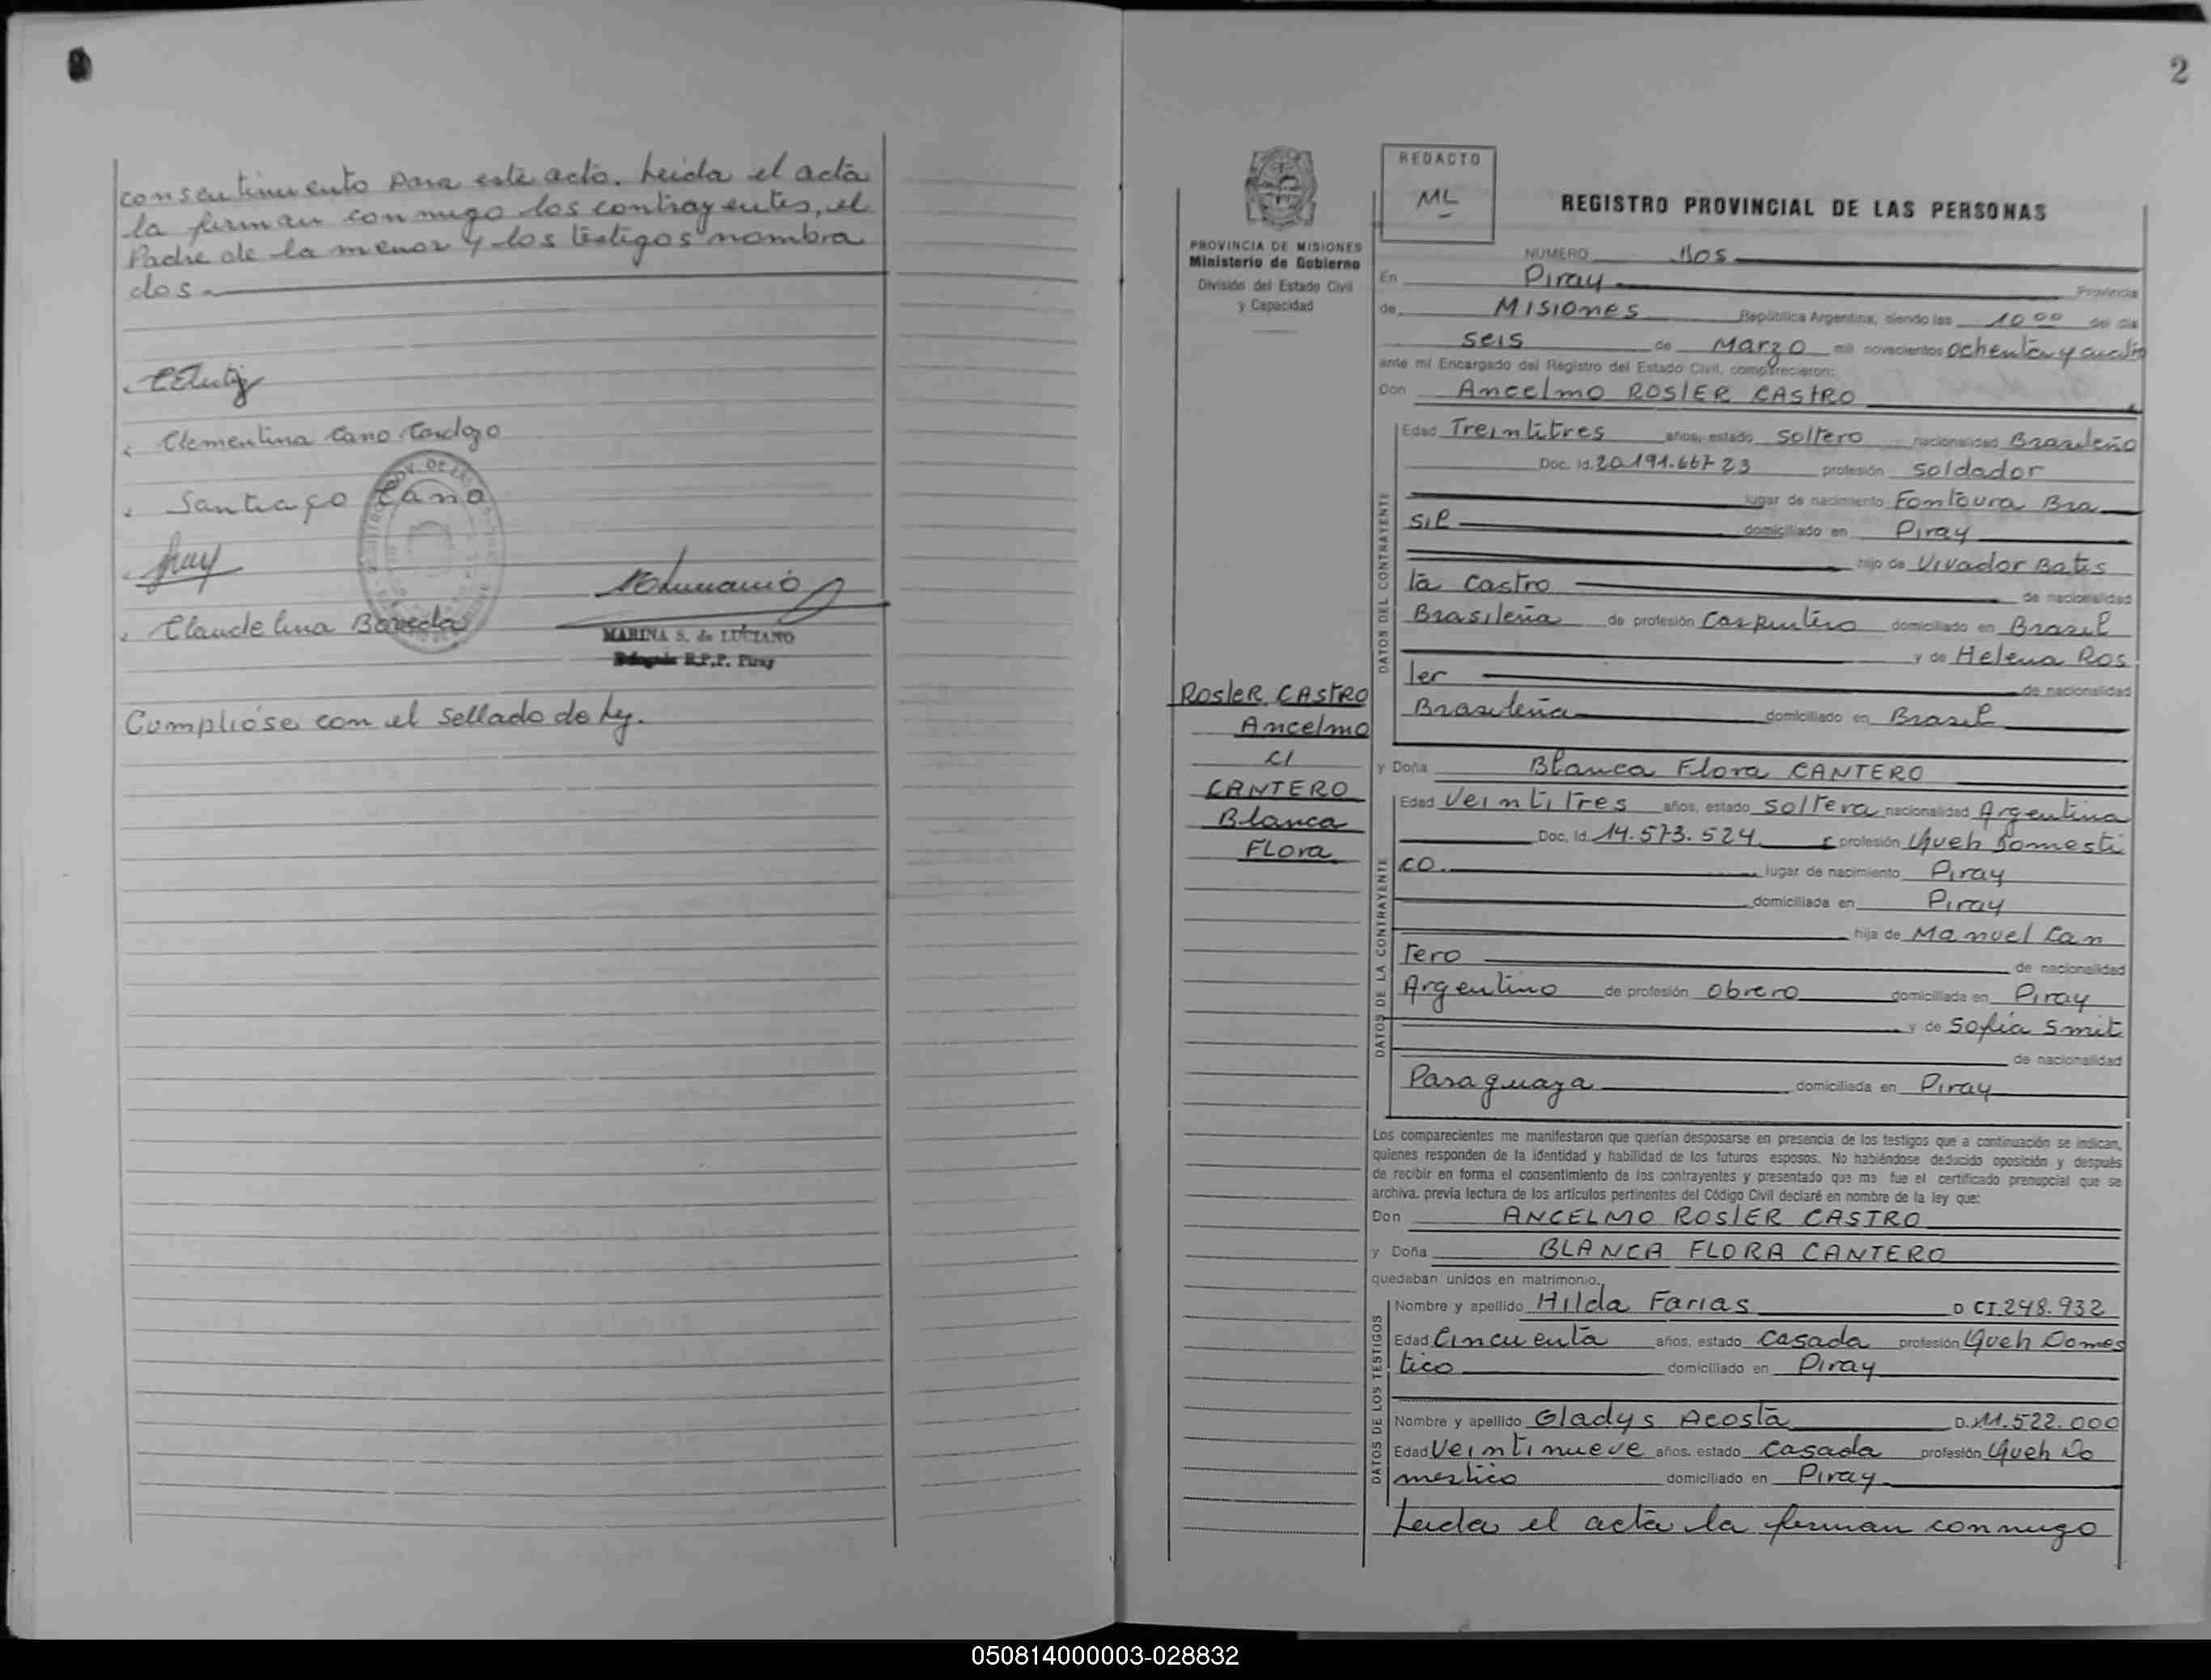 consentimiento para este acto. Leida el acta
la firman conmigo los contrayentes, el
Padre de la menor y los testigos nombra
dos
Clementina Cano Cardozo
Santiago Cano
Claudelina Báveda
MARINA S. de LUCIANO
Delegada R.P.P. Piray
Cumplióse con el sellado de Ley.
2
PROVINCIA DE MISIONES
Ministerio de Gobierno
División del Estado Civil
y Capacidad
REDACTO
ML
REGISTRO PROVINCIAL DE LAS PERSONAS
NUMERO Dos
En Piray Provincia
de Misiones República Argentina, siendo las 10 00 del dia
seis de Marzo mil novecientos ochenta y cuatro
ante mi Encargado del Registro del Estado Civil, comparecieron:
Don Ancelmo ROSLER CASTRO
DATOS DEL CONTRAYENTE
Edad Treintitres años, estado soltero nacionalidad Brasileño
Doc. Id. 20.191.667 23 profesión soldador
lugar de nacimiento Fontoura Bra
sil domiciliado en Piray
hijo de Vivador Batis
ta Castro de nacionalidad
Brasileña de profesión Carpintero domiciliado en Brasil
y de Helena Ros
ler de nacionalidad
Brasileña domiciliado en Brasil
RosleR CASTRO
Ancelmo
c/
CANTERO
Blanca
FLora
y Doña Blanca Flora CANTERO
DATOS DE LA CONTRAYENTE
Edad Veintitres años, estado soltera nacionalidad Argentina
Doc. Id. 14.573.524 profesión Queh Domesti
co. lugar de nacimiento Piray
domiciliada en Piray
hija de Manuel Can
tero de nacionalidad
Argentino de profesión obrero domiciliada en Piray
y de Sofia Smit
de nacionalidad
Paraguaya domiciliada en Piray
Los comparecientes me manifestaron que querían desposarse en presencia de los testigos que a continuación se indican,
quienes responden de la identidad y habilidad de los futuros esposos. No habiéndose deducido oposición y después
de recibir en forma el consentimiento de los contrayentes y presentado que me fue el certificado prenupcial que se
archiva. previa lectura de los articulos pertinentes del Código Civil declaré en nombre de la ley que:
Don ANCELMO ROSLER CASTRO
y Doña BLANCA FLORA CANTERO
quedaban unidos en matrimonio.
DATOS DE LOS TESTIGOS
Nombre y apellido Hilda Farias D CI.248.932
Edad Cincuenta años, estado casada profesión Queh Domes
tico domiciliado en Piray
Nombre y apellido Gladys Acosta D. 11.522.000
Edad Veintinueve años. estado casada profesión Queh Do
mestico domiciliado en Piray
Leida el acta la firman conmigo
050814000003-028832